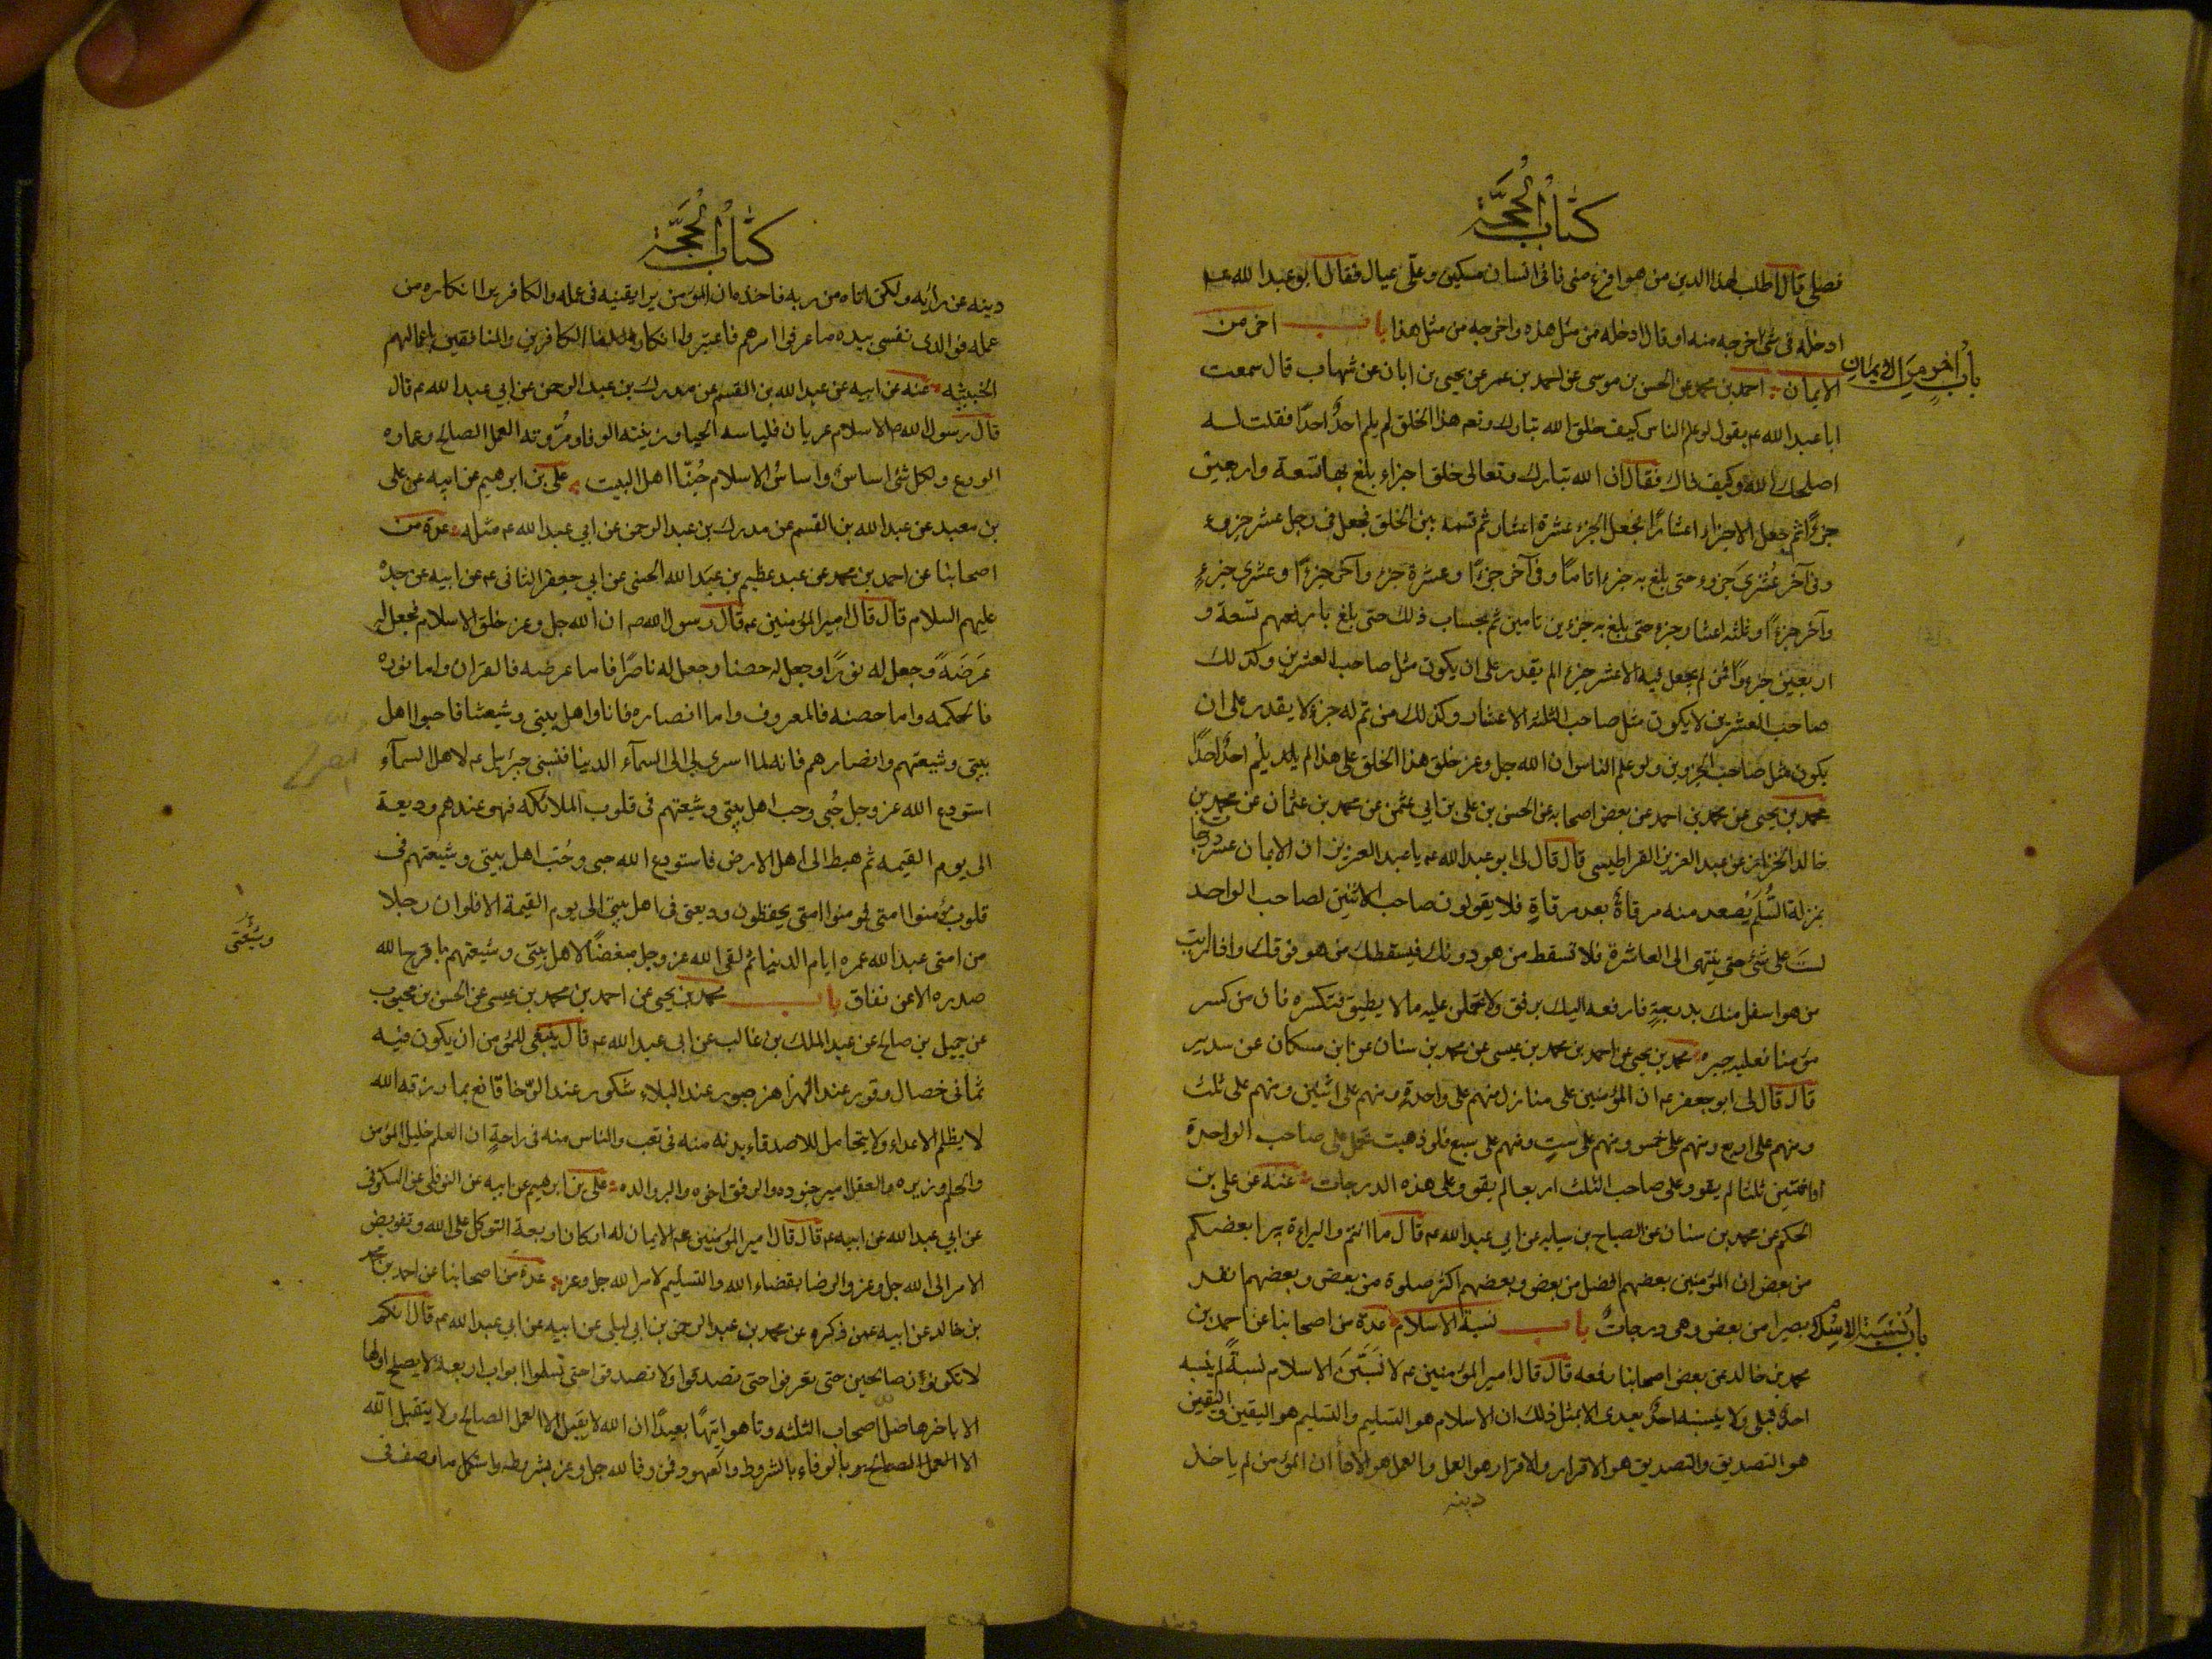 كتاب الحجة
فصلى قال اطلب لهذا الدين من هو افرغ منى فانى انسان مسكين وعلى عيال فقال ابو عبد الله عم
ادخله فى شئ اخرجه منه او قال ادخله من مثل هذه واخرجه من مثل هذا باب اخر من
باب آخر من الايمان
الايمان احمد بن محمد عن الحسن بن موسى عن احمد بن عمر عن يحيى بن ابان عن شهاب قال سمعت
ابا عبد الله عم يقول لو علم الناس كيف خلق الله تبارك وتعم هذا الخلق لم يلم احدٌ احدًا فقلت له
اصلحك الله وكيف ذاك فقال ان الله تبارك وتعالى خلق اجزاء بلغ بها تسعة واربعين
جزءًا ثم جعل الاجزاء اعشارًا فجعل الجزء عشرة اعشار ثم قسمه بين الخلق فجعل فى رجل عشر جزء
وفى آخر عُشْرَىْ جزء حتى بلغ به جزءا تاما وفى آخر جزءًا وعشر جزء وآخر جزءًا وعشرى جزء
وآخر جزءًا وثلثه اعشار جزء حتى بلغ به جزءين تامين ثم بحساب ذلك حتى بلغ بارفعهم تسعة و
اربعين جزءا فمن لم يجعل فيه الا عشر جزء لم يقدر على ان يكون مثل صاحب العشرين وكذلك
صاحب العشرين لا يكون مثل صاحب الثلثه الاعشار وكذلك من تم له جزء لا يقدر على ان
يكون مثل صاحب الجزوين ولو علم الناس ان الله جل وعز خلق هذا الخلق على هذا لم يلم احدٌ احدًا
محمد بن يحيى عن محمد بن احمد عن بعض اصحابه عن الحسن بن على بن ابي عثمن عن محمد بن عثمان عن محمد بن
خالد الخزاز عن عبد العزيز القراطيسى قال قال لى ابو عبد الله عم يا عبد العزيز ان الايمان عشر درجات
بمنزلة السُّلَّم يُصعد منه مرقاةً بعد مرقاةٍ فلا يقولون صاحب الاثنين لصاحب الواحد
لستَ على شئ حتى ينتهى الى العاشرة فلا تسقط من هو دونك فيسقطك من هو فوقك واذا رايت
من هو اسفل منك بدرجةٍ فارفعه اليك برفق ولا تحملن عليه ما لا يطيق فتكسره فان من كسر
مؤمنا فعليه جبره محمد بن يحيى عن احمد بن محمد بن عيسى عن محمد بن سنان عن ابن مسكان عن سدير
قال قال لى ابو جعفر عم ان المؤمنين على منازل منهم على واحدة ومنهم على اثنين ومنهم على ثلث
ومنهم على اربع ومنهم على خمس ومنهم على ستٍ ومنهم على سبع فلو ذهبت تحمل على صاحب الواحدة
ثنتين ثلثا لم يقو وعلى صاحب الثلث اربعا لم يقو وعلى هذه الدرجات عنه عن على بن
الحكم عن محمد بن سنان عن الصباح بن سيابه عن ابي عبد الله عم قال ما انتم والبراءة يبرا بعضكم
من بعض ان المؤمنين بعضهم افضل من بعض وبعضهم اكثر صلوة من بعض وبعضهم انفد
باب نسبة الاسلام
بصيرا من بعض وهى درجات باب نسبة الاسلام عدة من اصحابنا عن احمد بن
محمد بن خالد عن بعض اصحابنا رفعه قال قال امير المؤمنين عم لا نسبن الاسلام نسبةً لم ينسبه
احد قبلى ولا ينسبه احدٌ بعدى الا بمثل ذلك ان الاسلام هو التسليم والتسليم هو اليقين واليقين
هو التصديق والتصديق هو الاقرار والاقرار هو العمل والعمل هو الاداء ان المؤمن لم ياخذ
دينه
كتاب الحجة
دينه عن رأيه ولكن اتاه من ربه فاخذه ان المؤمن يرا يقينه فى عمله والكافر يرا انكاره من
عمله فو الذى نفسى بيده ما عرفوا امرهم فاعتبروا انكار الكافرين والمنافقين باعمالهم
الخبيثه عنه عن ابيه عن عبد الله بن القسم عن مدرك بن عبد الرحمن عن ابي عبد الله عم قال
قال رسول الله ص الاسلام عريان فلباسه الحياء وزينته الوفا ومرُوّته العمل الصالح وعماده
الورع ولكل شئ اساس واساس الاسلام حُبّنا اهل البيت على بن ابرهيم عن ابيه عن على
بن معبد عن عبد الله بن القسم عن مدرك بن عبد الرحمن عن ابي عبد الله عم مثله عدة من
اصحابنا عن احمد بن محمد عن عبد عظيم بن عبد الله الحسنى عن ابي جعفر الثانى عم عن ابيه عن جده
عليهم السلام قال قال امير المؤمنين عم قال رسول الله ص ان الله جل وعز خلق الاسلام فجعل له
عَرَصَةً وجعل له نورًا وجعل له حصنا وجعل له ناصرًا فاما عرصه فالقران واما نوره
فالحكمه واما حصنه فالمعروف واما انصاره فانا واهل بيتى وشيعتنا فاحبوا اهل
بيتى وشيعتهم وانصارهم فانه لما اسرى بى الى السمآء الدنيا فنسبنى جبرئيل عم لاهل السمآء
استودع الله عز وجل حُبى وحب اهل بيتى وشيعتهم فى قلوب الملائكه فهو عندهم وديعة
الى يوم القيمه ثم هبط الى اهل الارض فاستودع الله حبى وحُب اهل بيتى وشيعتهم فى
قلوب مؤمنوا امتى فمومنوا امتى يحفظون وديعتى فى اهل بيتى الى يوم القيمة الا فلو ان رجلا
وشيعتى
من امتى عبد الله عمره ايام الدنيا ثم لقى الله عز وجل مبغضًا لاهل بيتى وشيعتهم ما فرج الله
صدره الا عن نفاق باب محمد بن يحيى عن احمد بن محمد بن عيسى عن الحسن بن محبوب
عن جميل بن صالح عن عبد الملك بن غالب عن ابى عبد الله عم قال ينبغى للمؤمن ان يكون فيه
ثمانى خصال وقور عند الهزاهز صبور عند البلاء شكور عند الرّخا قانع بما رزقه الله
لا يظلم الاعداء ولا يتحامل للاصدقاء بدنه منه فى تعب والناس منه فى راحةٍ ان العلم خليل المؤمن
والحلم وزيره والعقل امير جنوده والرفق اخوه والبر والده على بن ابرهيم عن ابيه عن النوفلى عن السكونى
عن ابي عبد الله عن ابيه عم قال قال امير المؤمنين عم الايمان له اركان اربعة التوكل على الله وتفويض
الامر الى الله جل وعز والرضا بقضاء الله والتسليم لامر الله جل وعز عدة من اصحابنا عن احمد بن محمد
بن خالد عن ابيه عمن ذكره عن محمد بن عبد الرحمن بن ابي ليلى عن ابيه عن ابي عبد الله عم قال انكم
لا تكونون صالحين حتى تعرفوا حتى تصدقوا ولا تصدقوا حتى تسلموا ابواب اربعة لا يصلح اولها
الا باخرها ضل اصحاب الثلثه وتاهوا تيهًا بعيدًا ان الله لا يقبل الا العمل الصالح ولا يتقبل الله
الا بالوفاء بالشروط والعهود فمن وفا لله جل وعز بشرطه واستكمل ما وصف فى